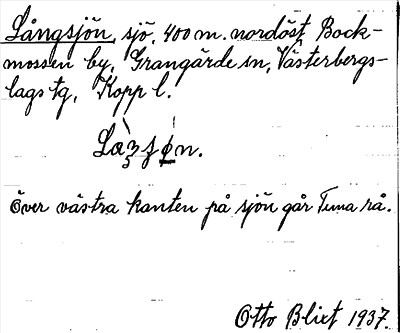 Långsjön, sjö, 400 m. nordöst Bock-
mossen by, Grangärde sn, Västerbergs-
lags tg, Kopp l.
Över västra kanten på sjön går Tuna rå.
Otto Blixt 1937.